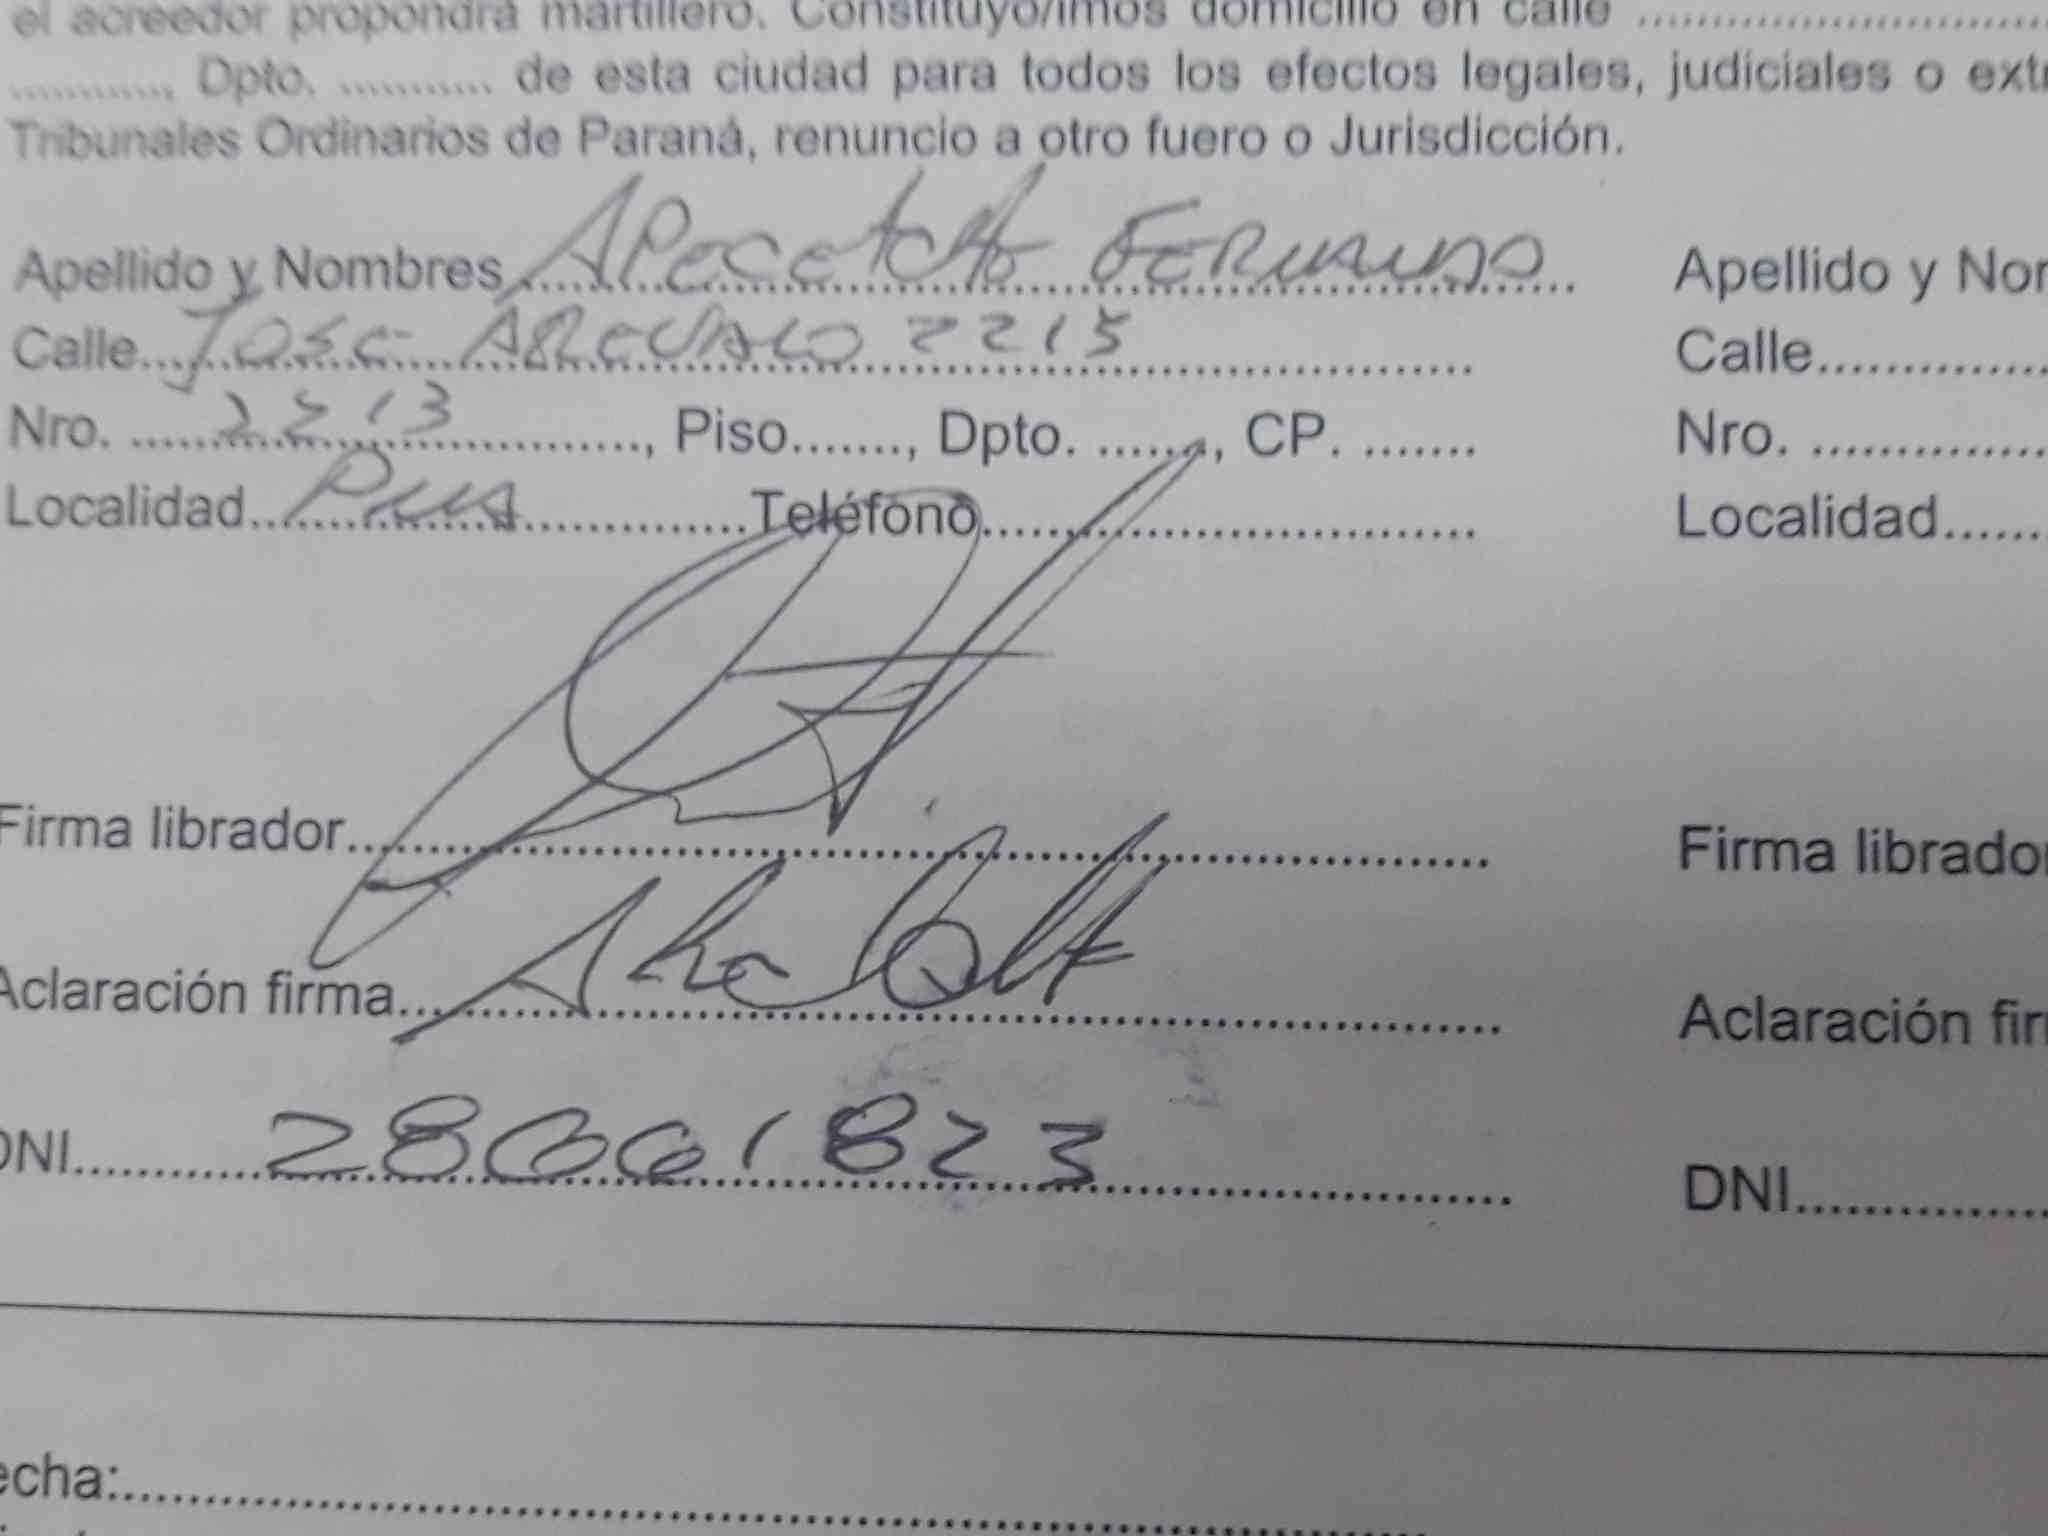 el acreedor propondrá martillero. Constituyo/imos domicilio en calle ..............................
............, Dpto. ........... de esta ciudad para todos los efectos legales, judiciales o extr
Tribunales Ordinarios de Paraná, renuncio a otro fuero o Jurisdicción.
Apellido y Nombres APecetche FERNANDO
Calle JOSE AREVALO 2215
Nro. 2213, Piso......., Dpto. ......., CP. .......
Localidad PNA Teléfono..............................
Firma librador..............................
Aclaración firma..............................
DNI 28 1823
Apellido y Nor
Calle..............
Nro. ..............
Localidad......
Firma librador
Aclaración fir
DNI..............
echa:..............................